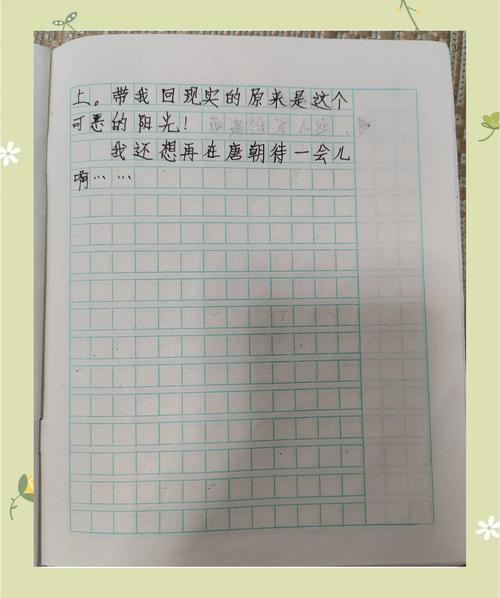 上。带我回现实的原来是这个
可恶的阳光！
我还想再在唐朝待一会儿
啊……